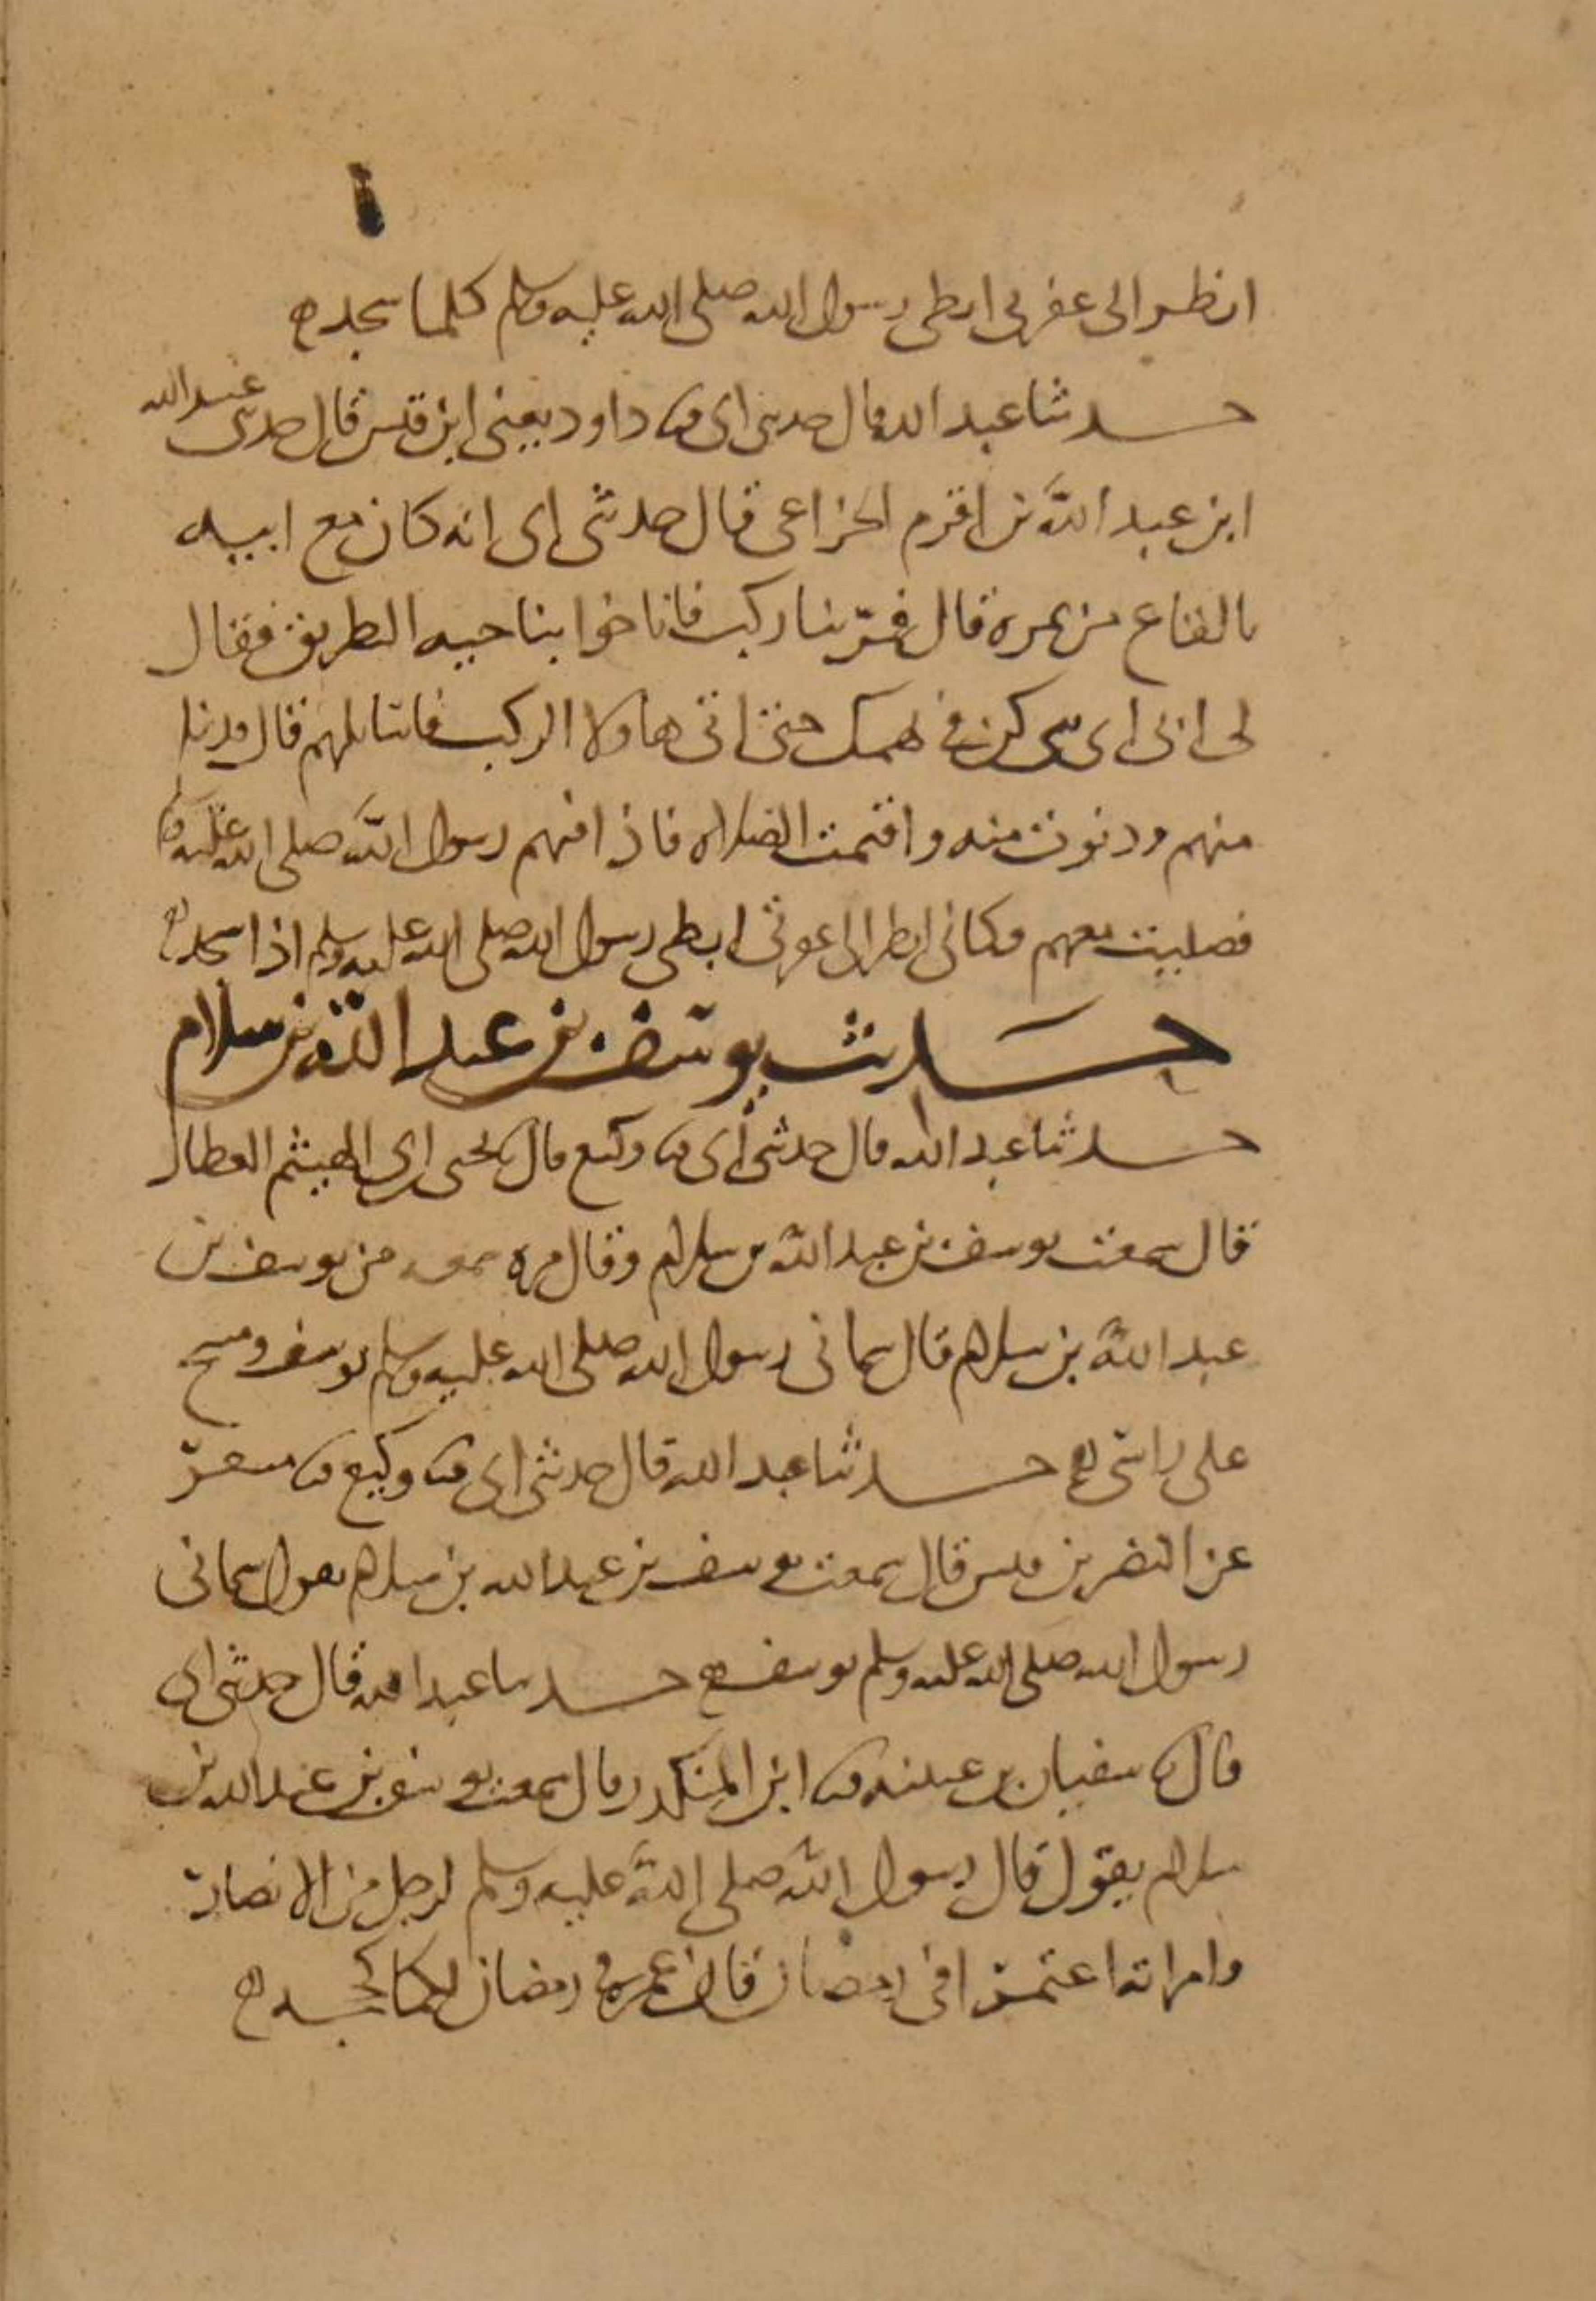 انظر الى عفرتى ابطى رسول الله صلى الله عليه وسلم كلما سجد ه
حدثنا عبد الله قال حدثنى ابى ثنا داود يعنى ابن قيس قال حدثنى عبيد الله
ابن عبد الله بن اقرم الخزاعى قال حدثنى ابى انه كان مع ابيه
بالقاع من نمرة قال فمرّ بنا ركب فاناخوا بناحيه الطريق فقال
لى ابى اى بنى كن فى بهمك حتى اتى هاولا الركب فاسايلهم قال ودنا
منهم ودنوت منه واقيمت الصلاه فاذا فيهم رسول الله صلى الله عليه وسلم
فصليت معهم فكانى انظر الى عفرتى ابطى رسول الله صلى الله عليه وسلم اذا سجد ه
حديث يوسف بن عبد الله بن سلام
حدثنا عبد الله قال حدثنى ابى ثنا وكيع قال ثنا يحيى بن ابى الهيثم العطار
قال سمعت يوسف بن عبد الله بن سلام وقال مره سمعه من يوسف بن
عبد الله بن سلام قال سمانى رسول الله صلى الله عليه وسلم يوسف ومسح
على راسى ه حدثنا عبد الله قال حدثنى ابى ثنا وكيع ثنا مسعر
عن النضر بن قيس قال سمعت يوسف بن عبد الله بن سلام يقول سمانى
رسول الله صلى الله عليه وسلم يوسف ه حدثنا عبد الله قال حدثنى ابى
قال ثنا سفيان بن عيينه ثنا ابن المنكدر قال سمعت يوسف بن عبد الله بن
سلام يقول قال رسول الله صلى الله عليه وسلم لرجل من الانصار
وامراته اعتمرا فى رمضان فان عمرة فى رمضان لكما كحجه ه